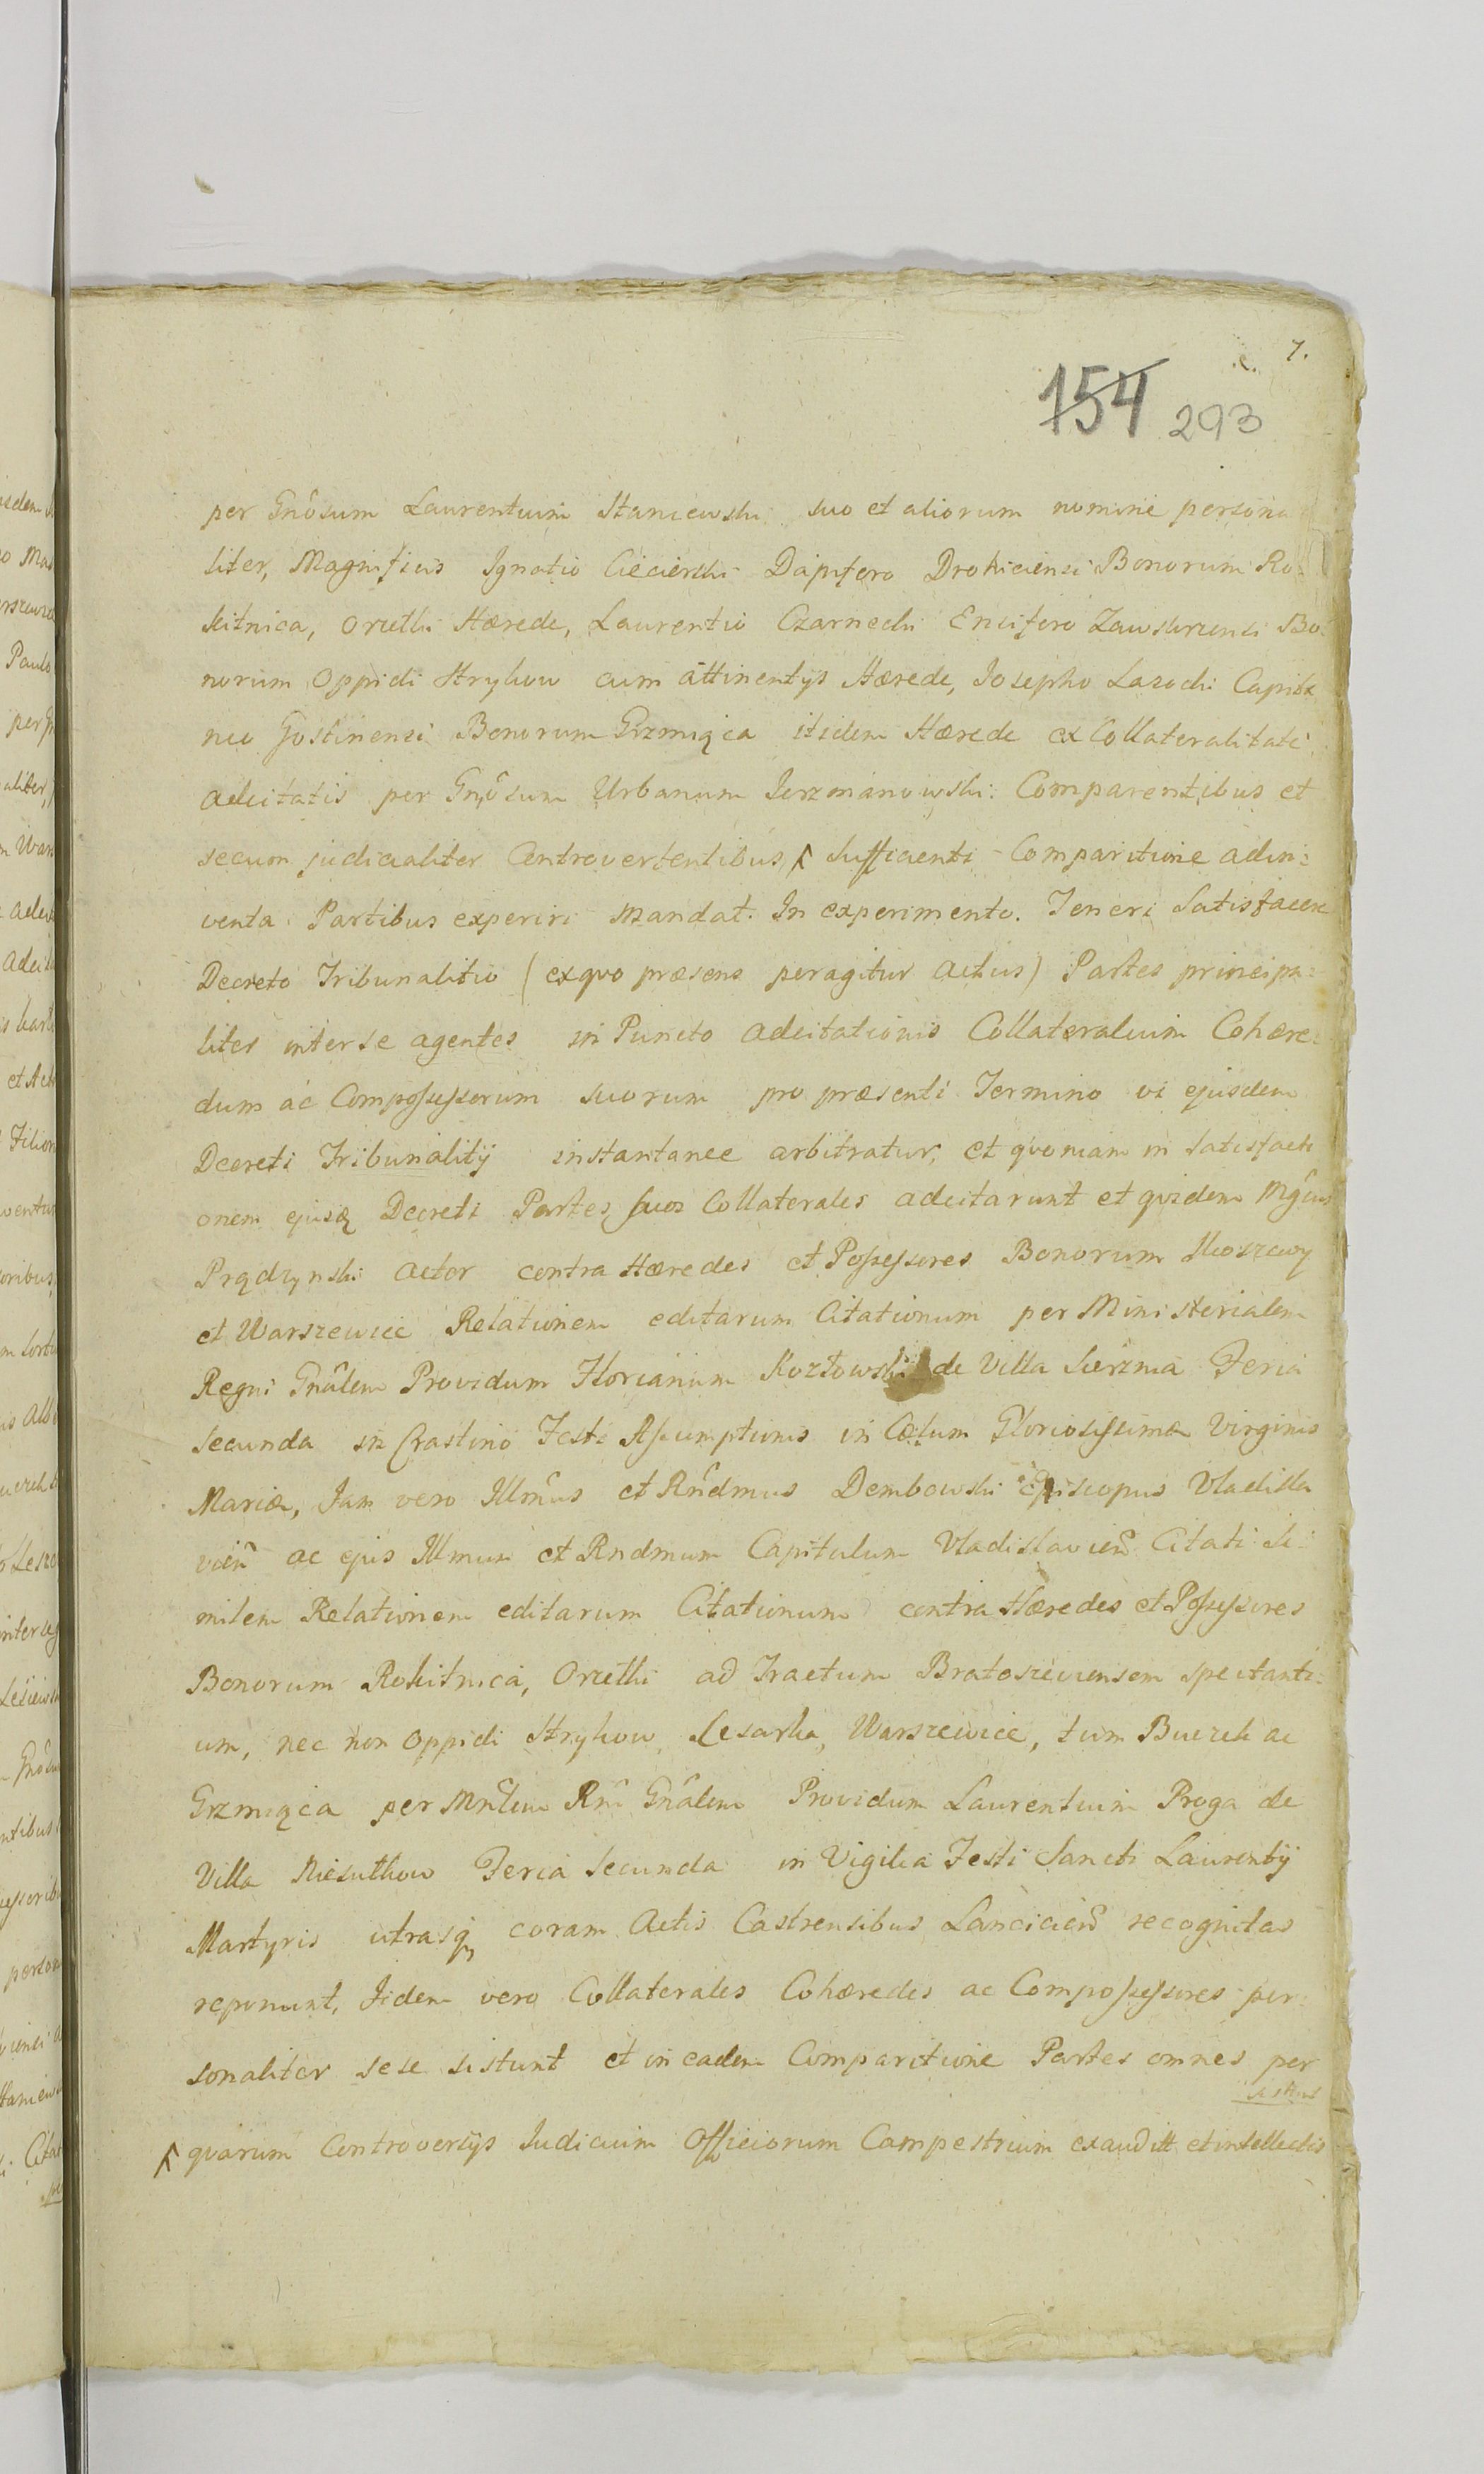 7.
154 293
per Gnôsum Laurentium Staniewski suo et aliorum nomine persona
liter, Magnificis Ignatio Ciecierski Dapifero Drohiciensi Bonorum Ro:
kitnica, Orzelki Hærede, Laurentio Czarnecki Ensifero Zawskrzensi Bo:
norum Oppidi Strykow cum attinentijs Hærede, Josepho Lasocki Capita
neo Gostinensi Bonorum Grzmiąca itidem Hærede ex Collateralitate
adcitatis per Gnôsum Urbanum Jerzmanowski: Comparentibus et
secum judicialiter Controvertentibus, sufficienti Comparitione adin:
venta Partibus experiri mandat. In experimento. Teneri Satisfacere
Decreto Tribunalitio (ex quo præsens peragitur actus) Partes principa:
liter inter se agentes in Puncto adcitationis Collateralium Cohære:
dum ac Compossessorum suorum pro præsenti Termino vi ejusdem
Decreti Tribunalitij instantanee arbitratur, et quoniam in satisfacti
onem ejusq Decreti Partes suos Collaterales adcitarunt et quidem Mgcus
Prądzynski actor contra Hæredes et Possessores Bonorum
et Warszewice Relationem editarum Citationum per Ministerialem
Regni Gnâlem Providum Florianum Kozłowski de Villa Sierznia Feria
secunda in Crastino Festi Assumptionis in Cælum Gloriosissimæ Virginis
Mariæ, Jam vero Illmus et Rndmus Dembowski Episcopus Vladisla
vien ac ejus Illmum et Rndmum Capitulum Vladislavien Citati Si:
milem Relationem editarum Citationum contra Hæredes et Possessores
Bonorum Rokitnica, Orzelki ad Tractum Bratoszeviensem spectanti:
um, nec non Oppidi Strykow, Lesarka, Warszewice, tum Buczek ac
Grzmiąca per Mnlem Rni Gnâlem Providum Laurentium Proga de
Villa Niesułkow Feria Secunda in Vigilia Festi Sancti Laurentij
Martyris utrasq coram Actis Castrensibus Lancicien recognitas
reponunt, Iidem vero Collaterales Cohæredes ac Compossessores per:
sonaliter sese sistunt et in eadem Comparitione Partes omnes per
sistus
quarum Controversijs Judicium Officiorum Campestrium exauditt et intellectis